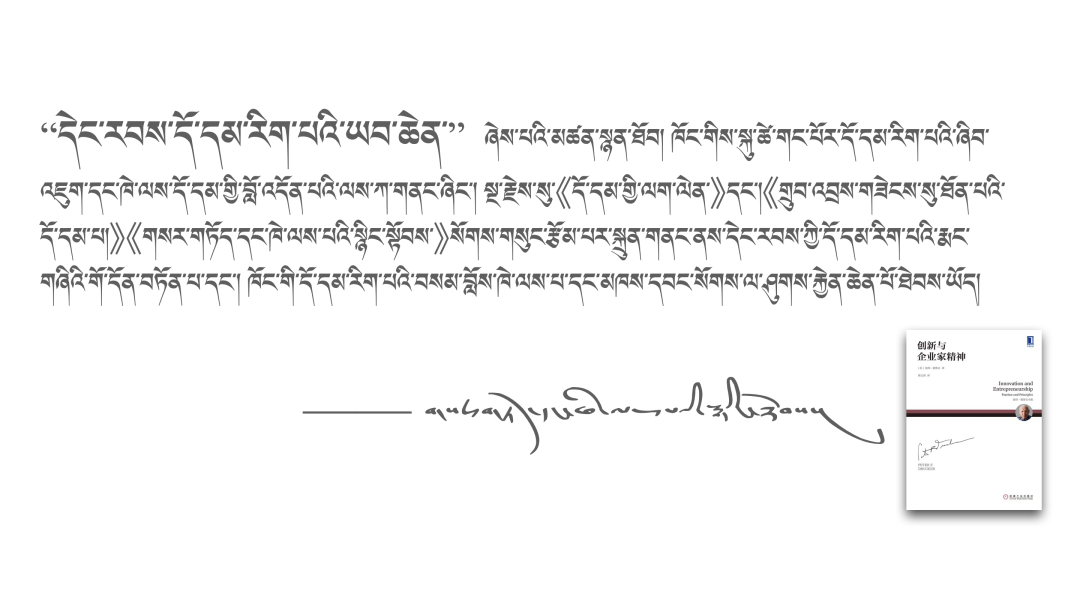 “དེང་རབས་དོ་དམ་རིག་པའི་ཡབ་ཆེན་” ཞེས་པའི་མཚན་སྙན་ཐོབ། ཁོང་གིས་སྐུ་ཚེ་གང་པོར་དོ་དམ་རིག་པའི་ཞིབ་
འཇུག་དང་ཁེ་ལས་དོ་དམ་གྱི་བློ་འདོན་པའི་ལས་ཀ་གནང་ཞིང་། སྔ་རྗེས་སུ་《དོ་དམ་གྱི་ལག་ལེན་》དང་།《གྲུབ་འབྲས་གཟེངས་སུ་ཐོན་པའི་
དོ་དམ་པ།》《གསར་གཏོད་དང་ཁེ་ལས་པའི་སྙིང་སྟོབས་》སོགས་གསུང་རྩོམ་པར་སྐྲུན་གནང་ནས་དེང་རབས་ཀྱི་དོ་དམ་རིག་པའི་རྨང་
གཞིའི་གོ་དོན་བཏོན་པ་དང་། ཁོང་གི་དོ་དམ་རིག་པའི་བསམ་བློས་ཁེ་ལས་པ་དང་མཁས་དབང་སོགས་ལ་ཤུགས་རྐྱེན་ཆེན་པོ་ཐེབས་ཡོད།
创新与
企业家精神
Innovation and
Entrepreneurship
Practice and Principles
机械工业出版社